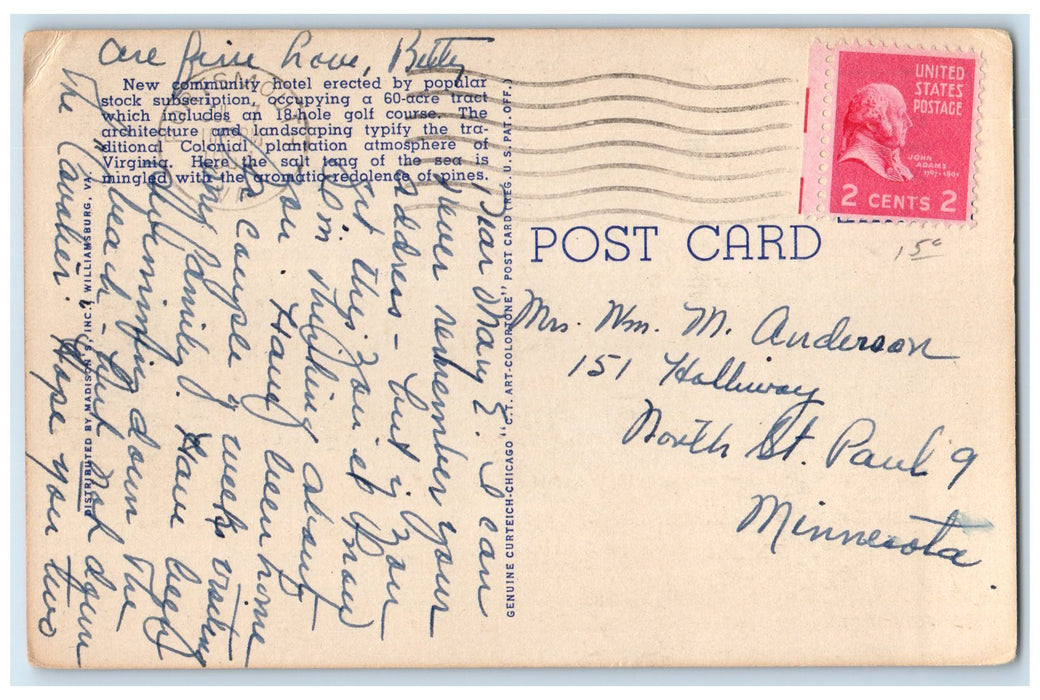 New community hotel erected by popular
stock subscription, occupying a 60-acre tract
which includes an 18-hole golf course. The
architecture and landscaping typify the tra-
ditional Colonial plantation atmosphere of
Virginia. Here the salt tang of the sea is
mingled with the aromatic redolence of pines.
DISTRIBUTED BY MADISON'S, INC., WILLIAMSBURG, VA.
Dear Mary E. I can
never remember your
address - but if you
get this you'll know
I'm thinking about
you. Having been home
a couple of weeks visiting
my family. Have been
swimming down the
beach - but not down
The "Cavalier". Hope you two
are fine Love, Betty
GENUINE CURTEICH-CHICAGO "C.T. ART-COLORTONE" POST CARD (REG. U.S. PAT. OFF.)
UNITED
STATES
POSTAGE
JOHN
ADAMS
1797-1801
2 CENTS 2
15¢
POST CARD
Mrs. Wm. M. Anderson
151 Holliway
North St. Paul 9
Minnesota.